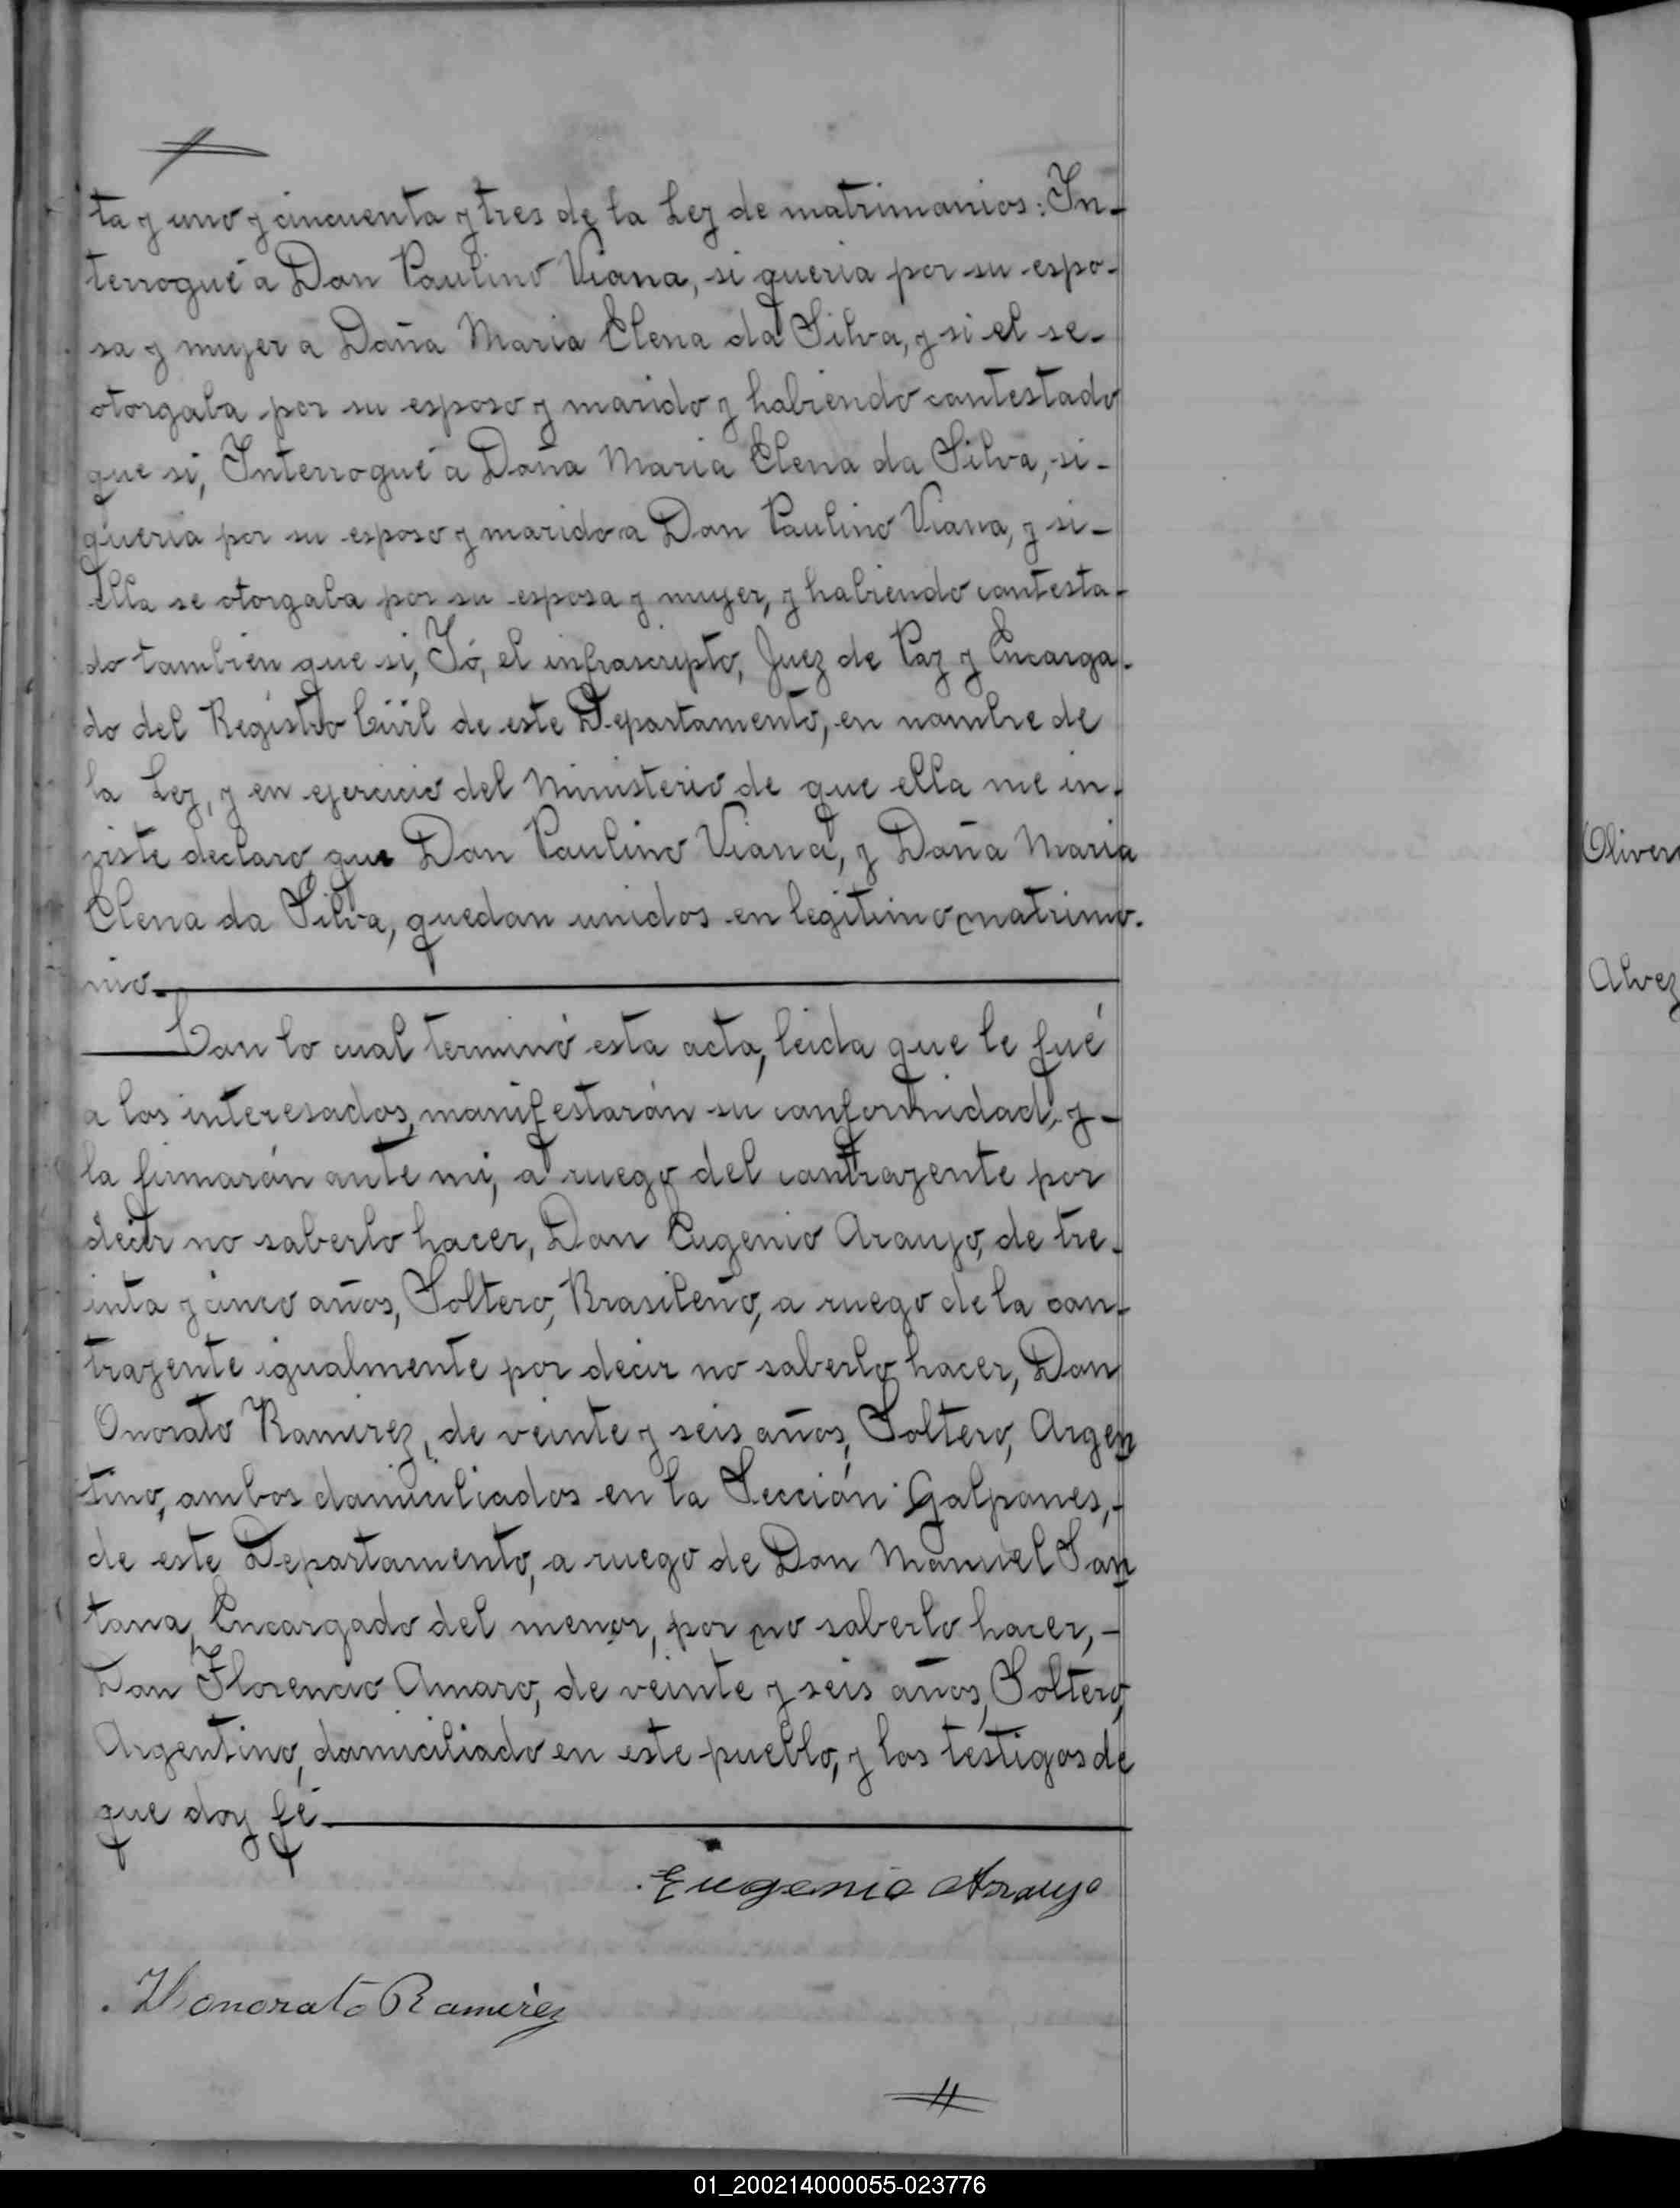 ta y uno y cincuenta y tres de la Ley de matrimonios: In-
terrogué a Don Paulino Viana, si queria por su espo-
sa y mujer a Doña Maria Elena da Silva, y si el se-
otorgaba por su esposo y marido y habiendo contestado
que si, Interrogué a Doña Maria Elena da Silva, si-
queria por su esposo y marido a Don Paulino Viana, y si-
ella se otorgaba por su esposa y mujer, y habiendo contesta-
do tambien que si, Yó, el infrascripto, Juez de Paz y Encarga-
do del Registro Civil de este Departamento, en nombre de
la Ley, y en ejercicio del Ministerio de que ella me in-
viste declaro, que Don Paulino Viana, y Doña Maria
Elena da Silva, quedan unidos en legitimo matrimo-
nio.
Con lo cual terminó esta acta, leida que le fué
a los interesados, manifestarán su conformidad, y-
la firmarán ante mi, a ruego del contrayente por
decir no saberlo hacer, Don Eugenio Araujo, de tre-
inta y cinco años, Soltero, Brasileño, a ruego de la con-
trayente igualmente por decir no saberlo hacer, Don
Onorato Ramirez, de veinte y seis años, Soltero, Argen
tino, ambos domiciliados en la Sección Galpones,-
de este Departamento, a ruego de Don Manuel San
tana, Encargado del menor, por no saberlo hacer,-
Don Florencio Amaro, de veinte y seis años, Soltero,
Argentino, domiciliado en este pueblo, y los testigos de
que doy fé.
Eugenio Araujo
Honorato Ramirez
Alvez
01_200214000055-023776